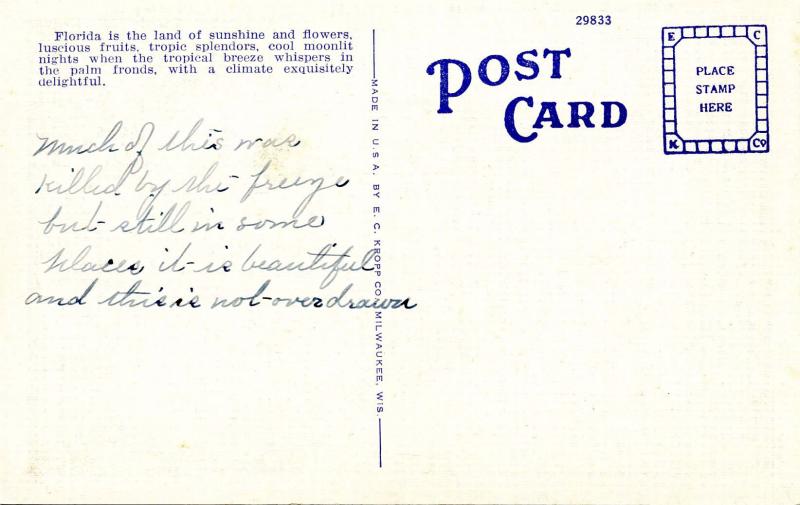 Florida is the land of sunshine and flowers,
luscious fruits, tropic splendors, cool moonlit
nights when the tropical breeze whispers in
the palm fronds, with a climate exquisitely
delightful.
Much of this was
killed by the freeze
but still in some
places it is beautiful
and this is not overdrawn
MADE IN U.S.A. BY E. C. KROPP CO., MILWAUKEE, WIS.
29833
POST
CARD
E C
PLACE
STAMP
HERE
K Co